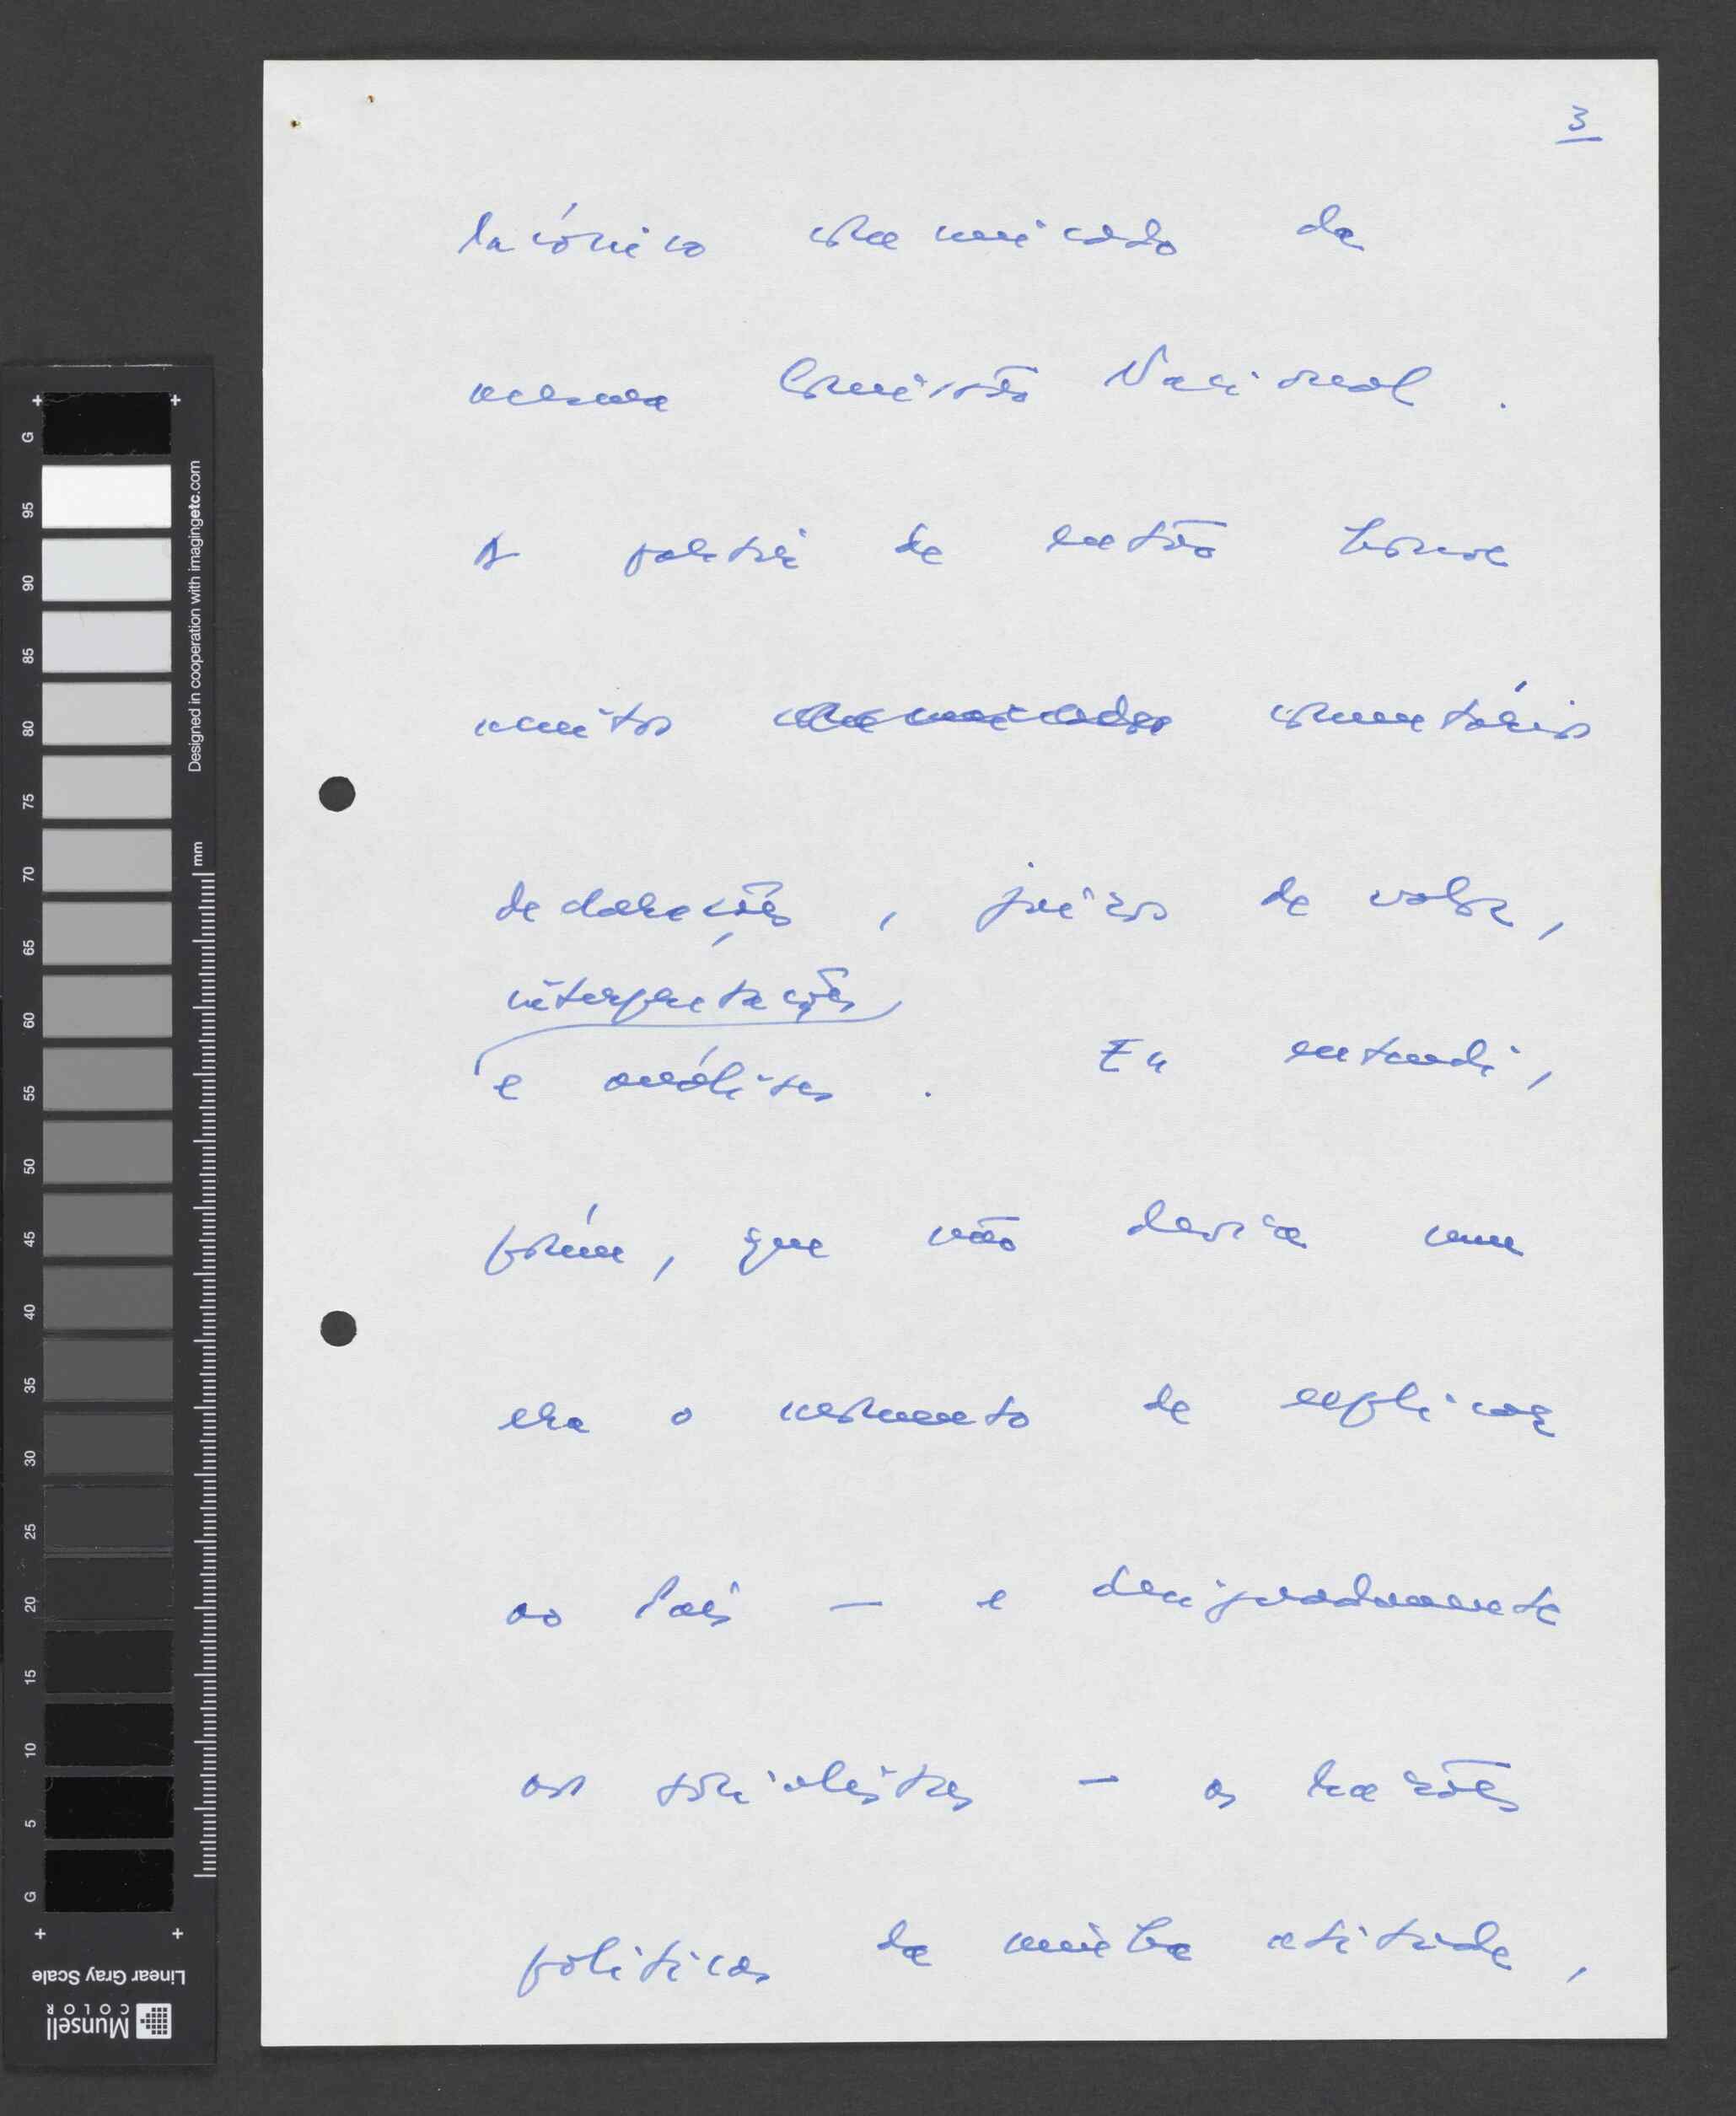 3
lacónico comunicado da
mesma Comissão Nacional.
A partir de então houve
muitos comunicados comentários
declarações, juízos de valor,
interpretações
e análises. Eu entendi,
porém, que não devia nem
era o momento de explicar
ao País — e designadamente
aos socialistas — as razões
políticas da minha atitude,
G
95
90
85
80
75
70
65
60
55
50
45
40
35
30
25
20
15
10
5
G
mm
Designed in cooperation with imagingetc.com
Linear Gray Scale
Munsell
COLOR